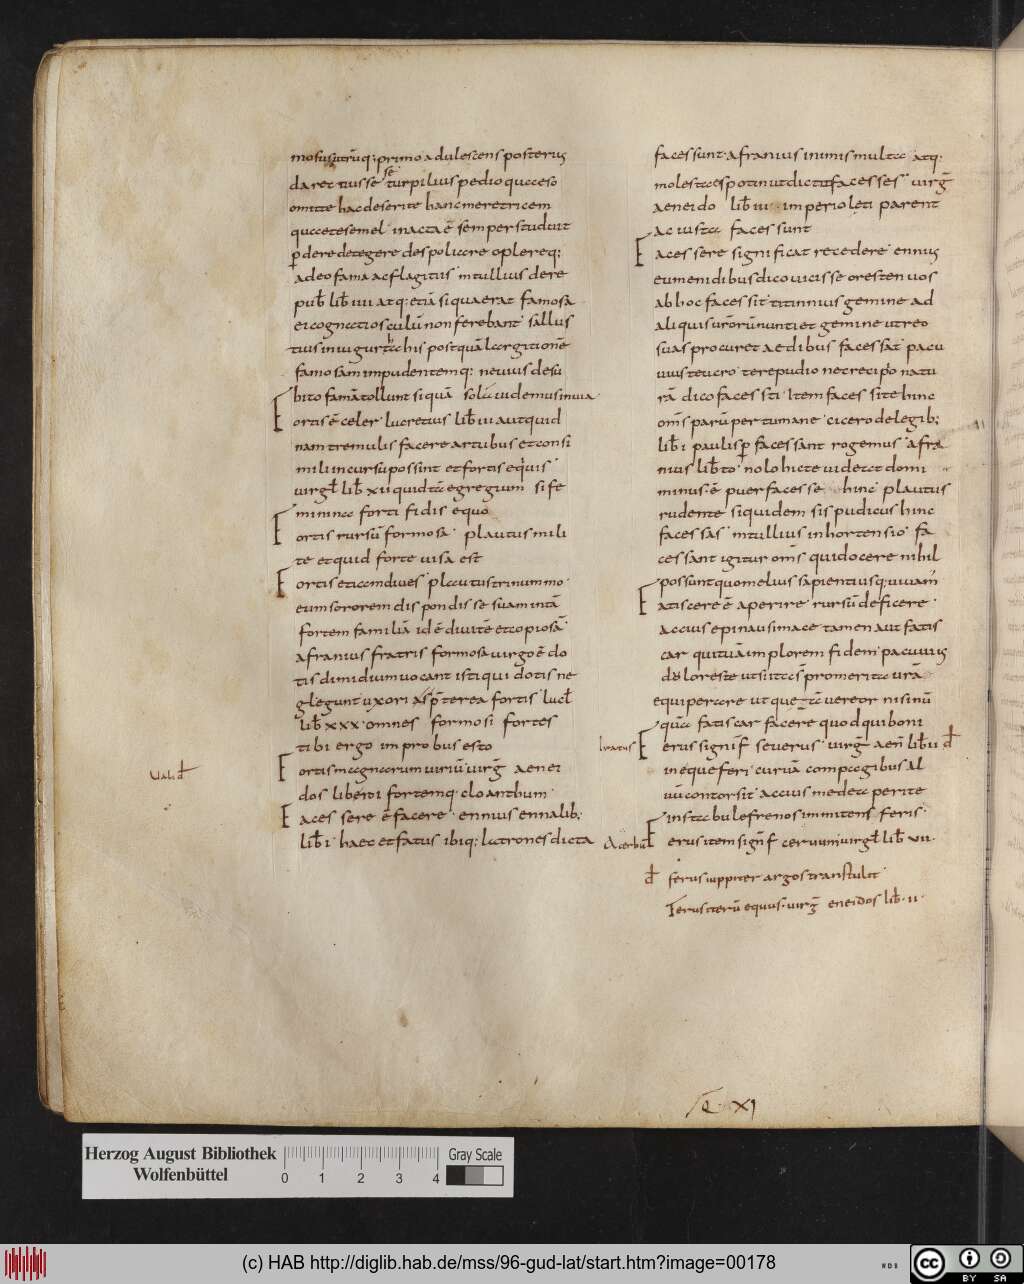 mosus utrūq; primo adulescens posterus
daret iussē turpilius pedio quaeso
omitte hac deserite hanc meretricem
quae te semel inacta ē semper studuit
ꝑdere detegere despoliare opplereq;
adeo fama ac flagitiis mtullius de re
pub̄ lib̄ iiii atq; etiā si quaerat famosā
ei cognatio sculū non ferebant sallus
tius in iugurta his postquā largitionē
famosam impudentemq; nevius desū
bito famā tollunt si quā solā uidemus in uia
Fortis ē celer lucretius lib̄ iii aut quid
nam tremulis facere artubus et consi
mili in cursu possint et fortis equis
uirgl̄ lib̄ xii quid ta egregium si fe
minina forti fidis equo
Fortis rursū formosa plautus mili
te et quid forte uisa est
Fortis etiam diues plautus trinummo
eum sororem dispondisse suam in tā
fortem familiā id ē diuitē et copiosā
afranius fratris formosa uirgo ē do
tis dimidium uocant isti qui dotis ne
glegunt uxori a p̄terea fortis lucl̄
lib̄ xxx omnes formosi fortes
tibi ergo improbus esto
Fortis magnarum uiriū uirḡ aenei
dos lib fortemq; cloanthum
Facessere ē facere ennius ennalib;
lib̄ i haec effatus ibiq; latrones dicta
facessunt afranius inimis multa atq;
molesta es potin ut dicta facesses uirḡ
aeneido lib̄ iiii imperio leti parent
ac iusta facessunt
Facessere significat recedere ennius
eumenidibus dico uicisse oresten uos
ab hoc facessit titinnius gemine ad
aliquis uōrū nuntiet gemine ut reo
suas procuret aedibus facessāt pacu
uius teucro te repudio nec recipio natu
rā dico facessti Item facessite hinc
om̄s parū per tu mane cicero de legib;
lib̄ i paulisꝑ facessant rogemus afra
nius lib̄to nolo hic te uideat domi
minus ē puer facesse hinc plautus
rudente siquidem sis pudicus hinc
facessas mtullius in hortensio fa
cessant igitur om̄s qui docere nihil
possunt quo melius sāpientiusq; uiuam̄
Fatiscere ē aperire rursū deficere
accius epinausimace tamen aut fatis
car quituā implorem fidem pacuuius
doloreste ut si ita s promerita urā
equiperare ut queā ta uereor nisi nū
quā fatiscar facere quod quiboni
Ferus signif̄ seuerus uirḡ aen̄ lib̄ ii đ
in equē feri curuā compagibus al
uū contorsit accius medea perite
insta bule frenos immitens feris
Ferus item sign̄f ceruum uirgl̄ lib̄ vii
đ ferus iuppiter argos transtulit
Ferus iterū equus uirḡ eneidos lib̄ ii
Iratus
Acerbus
Uali đ
Q XI
Herzog August Bibliothek
Wolfenbüttel
0 1 2 3 4
Gray Scale
(c) HAB http://diglib.hab.de/mss/96-gud-lat/start.htm?image=00178
WDB
cc BY SA